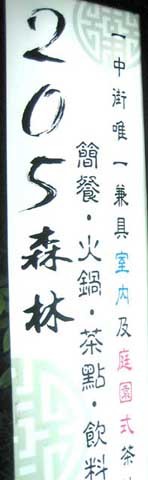 一中街唯一兼具室內及庭園式茶
簡餐·火鍋·茶點·飲料
205森林